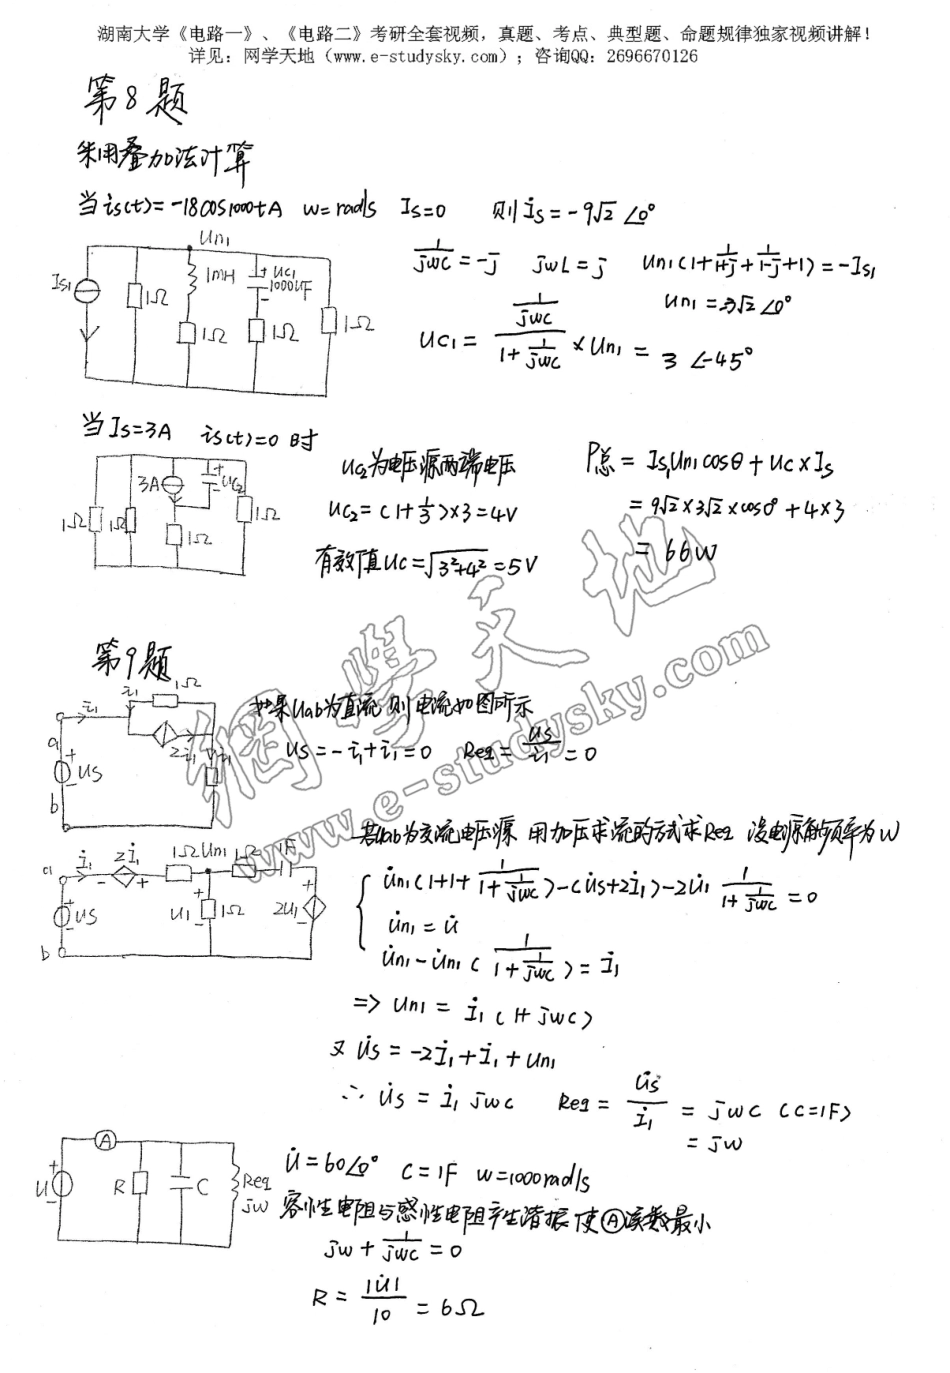 湖南大学《电路一》、《电路二》考研全套视频，真题、考点、典型题、命题规律独家视频讲解！
详见：网学天地（www.e-studysky.com）；咨询QQ：2696670126
第8题
采用叠加法计算
当is(t)=-18cos1000tA w=rad/s Is=0 则İs=-9√2∠0°
Un1
Is1 1Ω 1mH 1Ω + uc1 - 1000uF 1Ω 1Ω
1/jwc=-j jwL=j Un1(1+1/(1+j)+1/(1-j)+1)=-Is1
Un1=3√2∠0°
Uc1=(1/jwc)/(1+1/jwc)×Un1=3∠-45°
当Is=3A is(t)=0时
1Ω 1Ω 3A + uc2 - 1Ω 1Ω
uc2为电压源两端电压
uc2=(1+1/3)×3=4V
有效值uc=√(3²+4²)=5V
P总=Is1Un1cosθ+uc×Is
=9√2×3√2×cos0°+4×3
=66W
第9题
a i1 i1 1Ω 2i1 i1 + us - b
如果Uab为直流则电流如图所示
us=-i1+i1=0 Req=us/i1=0
若Uab为交流电压源 用加压求流的方式求Req 设电源角频率为w
a İ1 2İ1 - + 1Ω Un1 1Ω 1F + us - U1 + - 1Ω 2U1 + - b
U̇n1(1+1+1/(1+1/jwc))-(U̇s+2İ1)-2U̇1 1/(1+1/jwc)=0
U̇n1=U̇
U̇n1-U̇n1(1/(1+1/jwc))=İ1
=> Un1=İ1(1+jwc)
又U̇s=-2İ1+İ1+Un1
∴U̇s=İ1jwc Req=U̇s/İ1=jwc (c=1F)
=jw
A U + - R C Req jw
U̇=60∠0° C=1F w=1000rad/s
容性电阻与感性电阻产生谐振使Ⓐ读数最小
jw+1/jwc=0
R=|U̇|/10=6Ω
網學天地
www.e-studysky.com